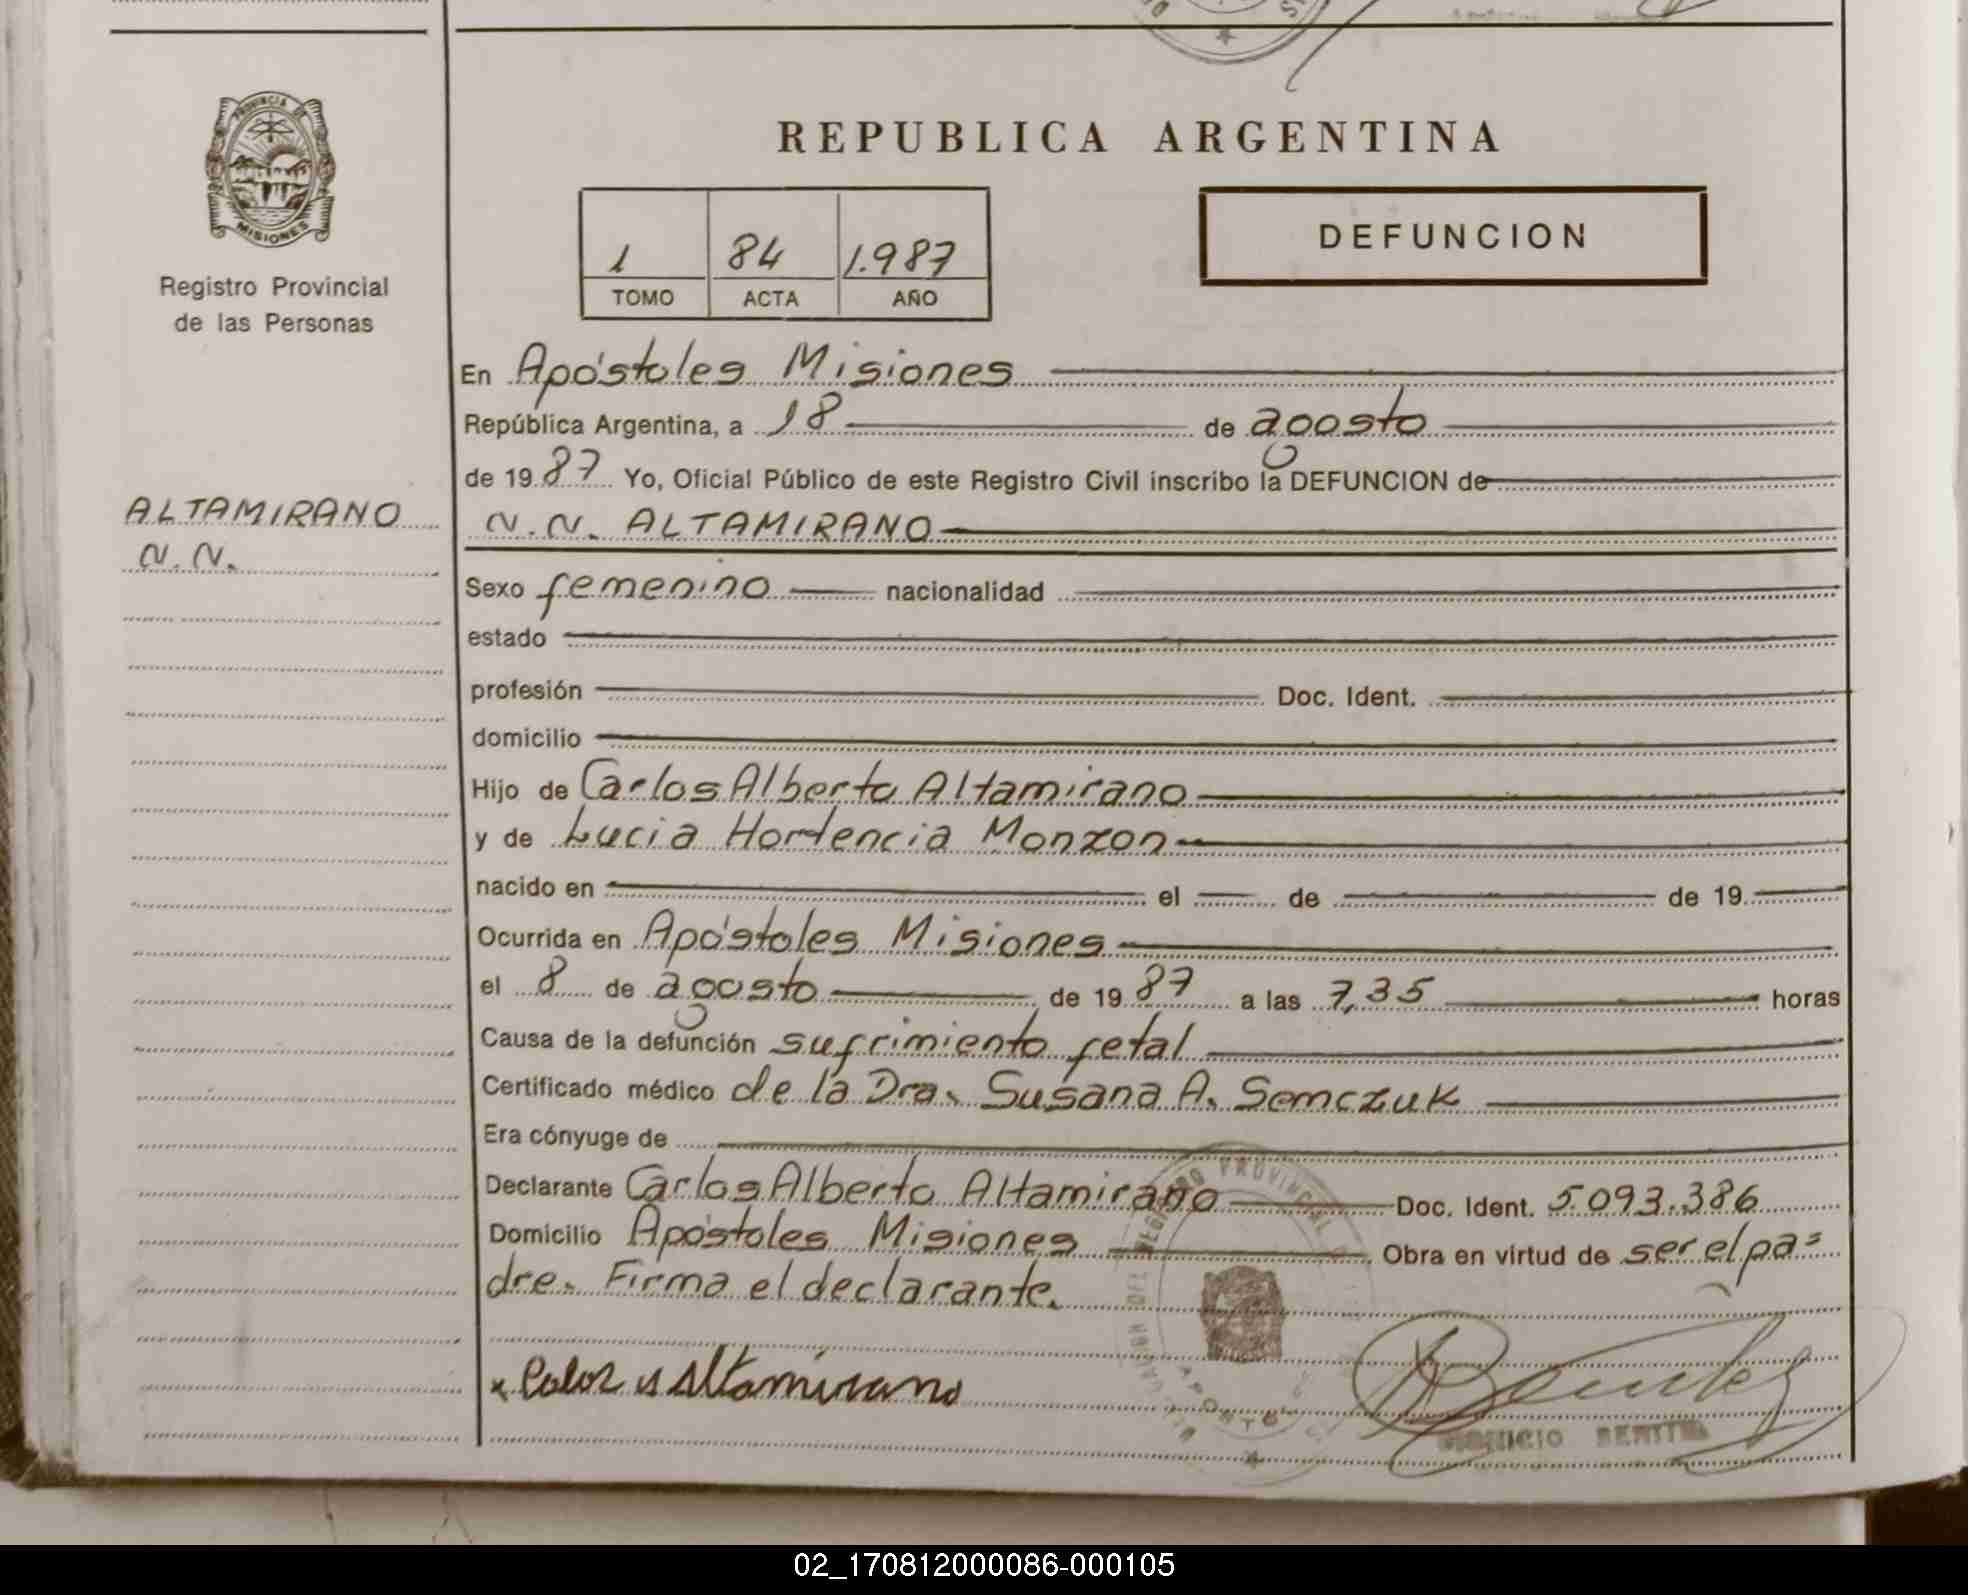 PROVINCIA DE
MISIONES
Registro Provincial
de las Personas
ALTAMIRANO
N.N.
REPUBLICA ARGENTINA
1 84 1.987
TOMO ACTA AÑO
DEFUNCION
En Apóstoles Misiones
República Argentina, a 18 de agosto
de 19 87 Yo, Oficial Público de este Registro Civil inscribo la DEFUNCION de
N.N. ALTAMIRANO
Sexo femenino nacionalidad
estado
profesión Doc. Ident.
domicilio
Hijo de Carlos Alberto Altamirano
y de Lucia Hortencia Monzon
nacido en el de de 19
Ocurrida en Apóstoles Misiones
el 8 de agosto de 19 87 a las 7,35 horas
Causa de la defunción sufrimiento fetal
Certificado médico de la Dra. Susana A. Semczuk
Era cónyuge de
Declarante Carlos Alberto Altamirano Doc. Ident. 5.093.386
Domicilio Apóstoles Misiones Obra en virtud de ser el pa=
dre. Firma el declarante.
Altamirano
02_170812000086-000105